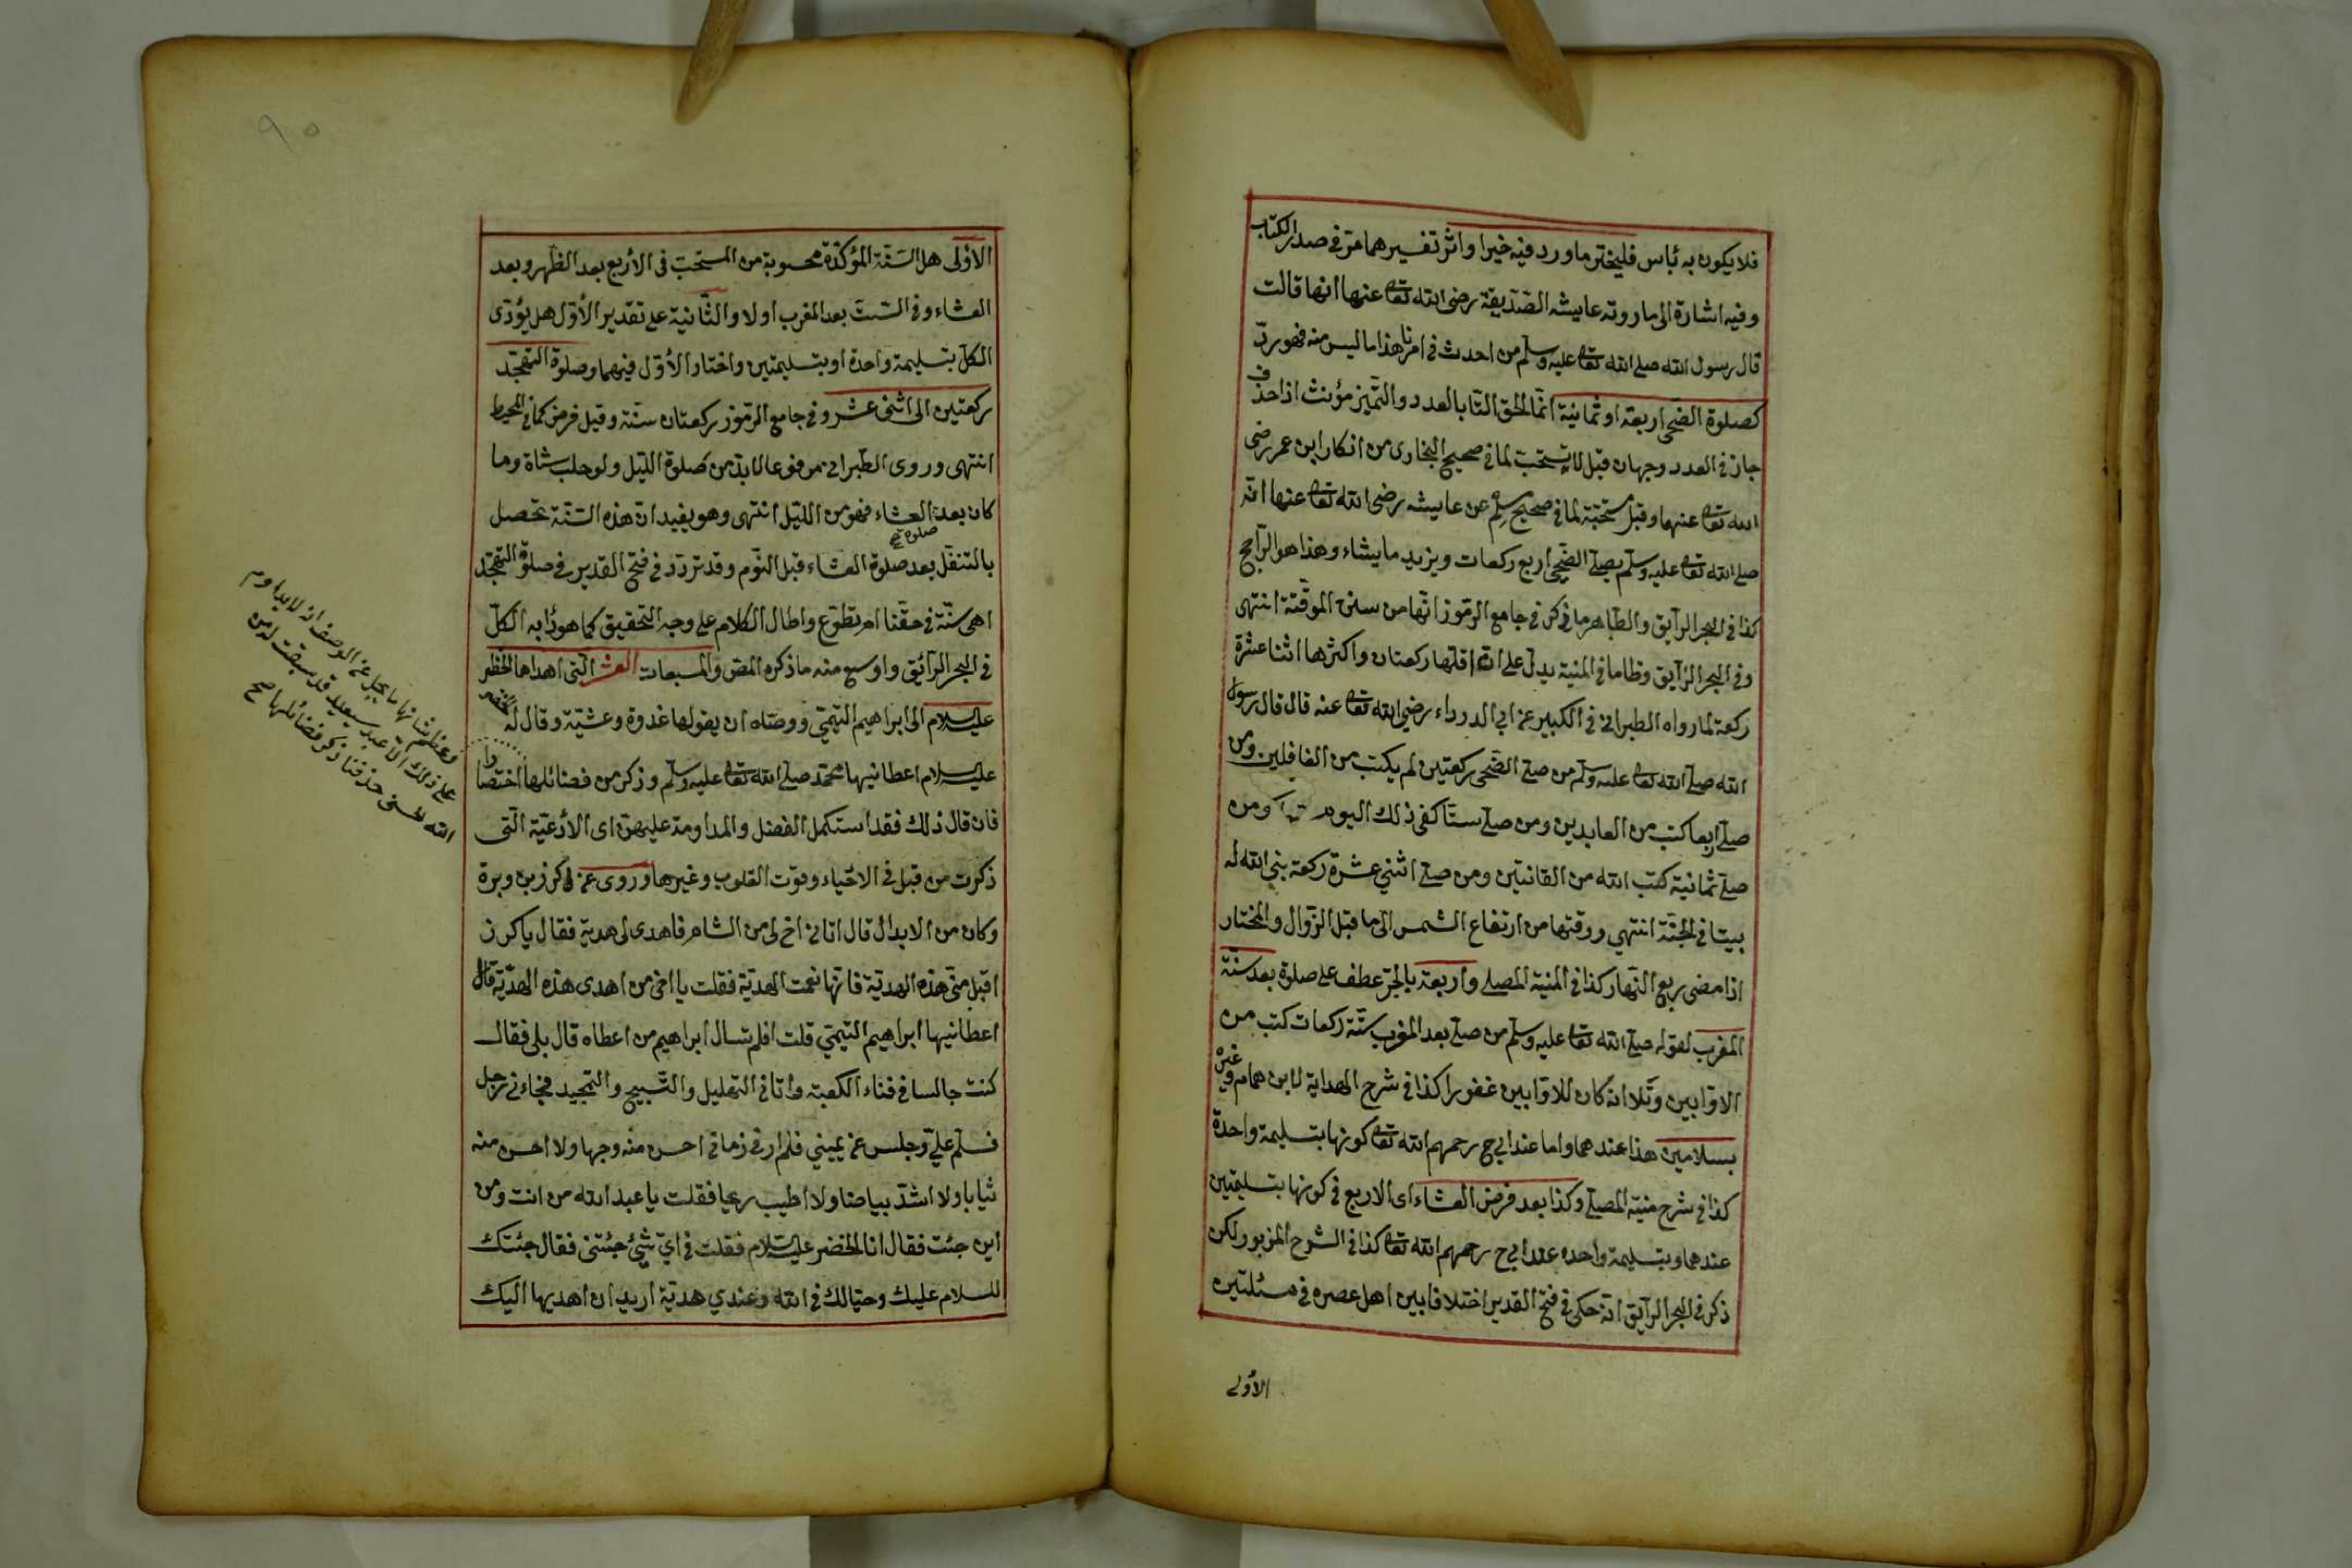 فلا يكون به بأس فليختر ما ورد فيه خيرا واثر تفسيرهما مر في صدر الكتاب
وفيه اشارة الى ما روته عايشه الصديقة رضى الله تعا عنها انها قالت
قال رسول الله صلى الله تعا عليه وسلم من احدث في امرنا هذا ما ليس منه فهو رد
كصلوة الضحى اربعة او ثمانية انما الحق التا بالعدد والتميز مؤنث اذا حذف
جاز في العدد وجهان قيل لا يستحب لما في صحيح البخارى من انكار ابن عمر رضى
الله تعا عنهما وقيل مستحبة لما في صحيح مسلم عن عايشه رضى الله تعا عنها انه
صلى الله تعا عليه وسلم يصلى الضحى اربع ركعات ويزيد ما يشاء وهذا هو الراجح
كذا في البحر الرايق والظاهر ما ذكر في جامع الرموز انها من سنن الموقتة انتهى
وفي البحر الرايق وظاما في المنية يدل على ان اقلها ركعتان واكثرها اثنا عشرة
ركعة لما رواه الطبرانى في الكبير عن ابي الدرداء رضى الله تعا عنه قال قال رسول
الله صلى الله تعا عليه وسلم من صلى الضحى ركعتين لم يكتب من الغافلين ومن
صلى اربعا كتب من العابدين ومن صلى ستا كفى ذلك اليوم ومن
صلى ثمانية كتب الله من القانتين ومن صلى اثنى عشرة ركعة بنى الله له
بيتا في الجنة انتهي ووقتها من ارتفاع الشمس الى ما قبل الزوال والمختار
اذا مضى ربع النهار كذا في المنية المصلى واربعة بالجر عطف على صلوة بعد سنة
المغرب لقوله صلى الله تعا عليه وسلم من صلى بعد المغرب ستة ركعات كتب من
الاوابين وتلا انه كان للاوابين غفورا كذا في شرح الهداية لابن همام وغيره
بسلامين هذا عندهما واما عند ابي ح رحمهم الله تعا كونها بتسليمة واحدة
كذا في شرح منية المصلى وكذا بعد فرض العشاء اى الاربع في كونها بتسليمتين
عندهما وبتسليمة واحده عند ابي ح رحمهم الله تعا كذا في الشرح المزبور ولكن
ذكر في البحر الرايق انه حكى في فتح القدير اختلافا بين اهل عصره في مسئلتين
الأولى
٩٠
الأولى هل السنة المؤكدة محسوبة من المستحب في الأربع بعد الظهر وبعد
العشاء وفي الست بعد المغرب اولا والثانية على تقدير الأول هل يؤدى
الكل بتسليمة واحدة او بتسليمتين واختار الأول فيهما وصلوة التهجد
ركعتين الى اثنى عشر وفي جامع الرموز ركعتان سنة وقيل فرض كما في المحيط
انتهى وروى الطبرانى مرفوعا لا بد من صلوة الليل ولو حلب شاة وما
كان بعد العشاء فهو من الليل انتهى وهو يفيد ان هذه السنة تحصل
بالتنفل بعد صلوة العشاء قبل النوم وقد تردد في فتح القدير في صلوة التهجد
صلوة صح
اهى سنة في حقنا ام تطوع واطال الكلام على وجه التحقيق كما هو دابه الكل
في البحر الرائق واوسع منه ما ذكره المص والمسبعات العشر التى اهداها الخضر
عليه السلام الى ابراهيم التيمى ووصاه ان يقولها غدوة وعشية وقال له الخضر
عليه السلام اعطانيها محمد صلى الله تعا عليه وسلم وذكر من فضائلها اختصارا
فان قال ذلك فقد استكمل الفضل والمداومة عليهن اى الأدعية التى
ذكرت من قبل في الاحياء وقوت القلوب وغيرها وروى عن كرز بن وبرة
وكان من الابدال قال اتانى اخ لى من الشام فاهدى لى هدية فقال يا كرز
اقبل منى هذه الهدية فانها نعمت الهدية فقلت يا اخى من اهدى هذه الهدية قال
اعطانيها ابراهيم التيمى قلت افلم تسال ابراهيم من اعطاه قال بلى فقال
كنت جالسا في فناء الكعبة وانا في التهليل والتسبيح والتمجيد فجاءنى رجل
فسلم علي وجلس عن يمينى فلم ار في زمانى احسن منه وجها ولا احسن منه
ثيابا ولا اشد بياضا ولا اطيب ريحا فقلت يا عبد الله من انت ومن
اين جئت فقال انا الخضر عليه السلام فقلت في اي شيئ جئتنى فقال جئتك
للسلام عليك وحبا لك في الله وعندي هدية اريد ان اهديها اليك
وعظم شانها ما يجل عن الوصف انه لا يداوم
على ذلك الا عبد سعيد قد سبقت له من
الله الحسنى حذفنا ذكر فضائلها صح